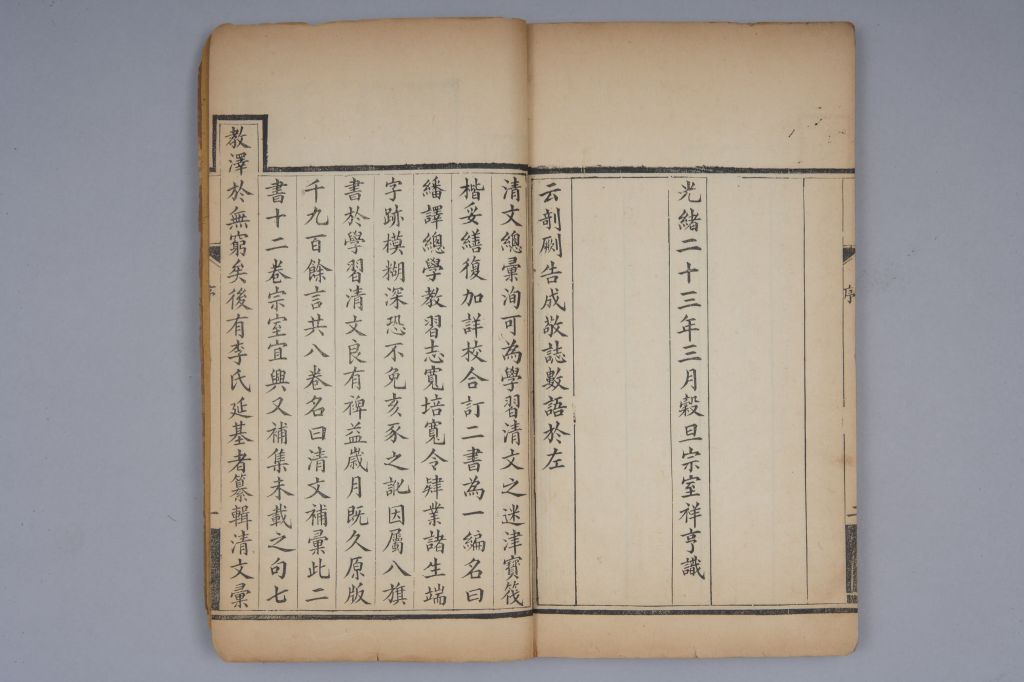 序
教澤於無窮矣後有李氏延基者纂輯清文彙
書十二卷宗室宜興又補集未載之句七
千九百餘言共八卷名曰清文補彙此二
書於學習清文良有裨益歲月既久原版
字跡模糊深恐不免亥豕之訛因屬八旗
繙譯總學教習志寬培寬令肄業諸生端
楷妥繕復加詳校合訂二書為一編名曰
清文總彙洵可為學習清文之迷津寶筏
云剞劂告成敬誌數語於左
光緒二十三年三月穀旦宗室祥亨識
序